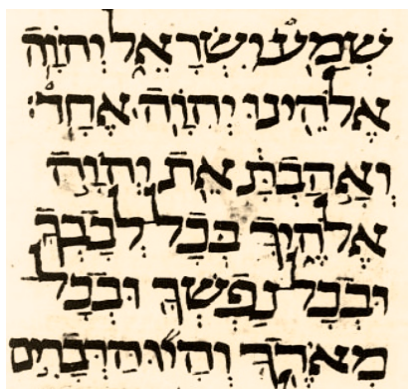 שְׁמַע יִשְׂרָאֵל יְהֹוָה
אֱלֹהֵינוּ יְהֹוָה אֶחָד׃
וְאָהַבְתָּ אֵת יְהֹוָה
אֱלֹהֶיךָ בְּכָל לְבָבְךָ
וּבְכָל נַפְשְׁךָ וּבְכָל
מְאֹדֶךָ וְהָיוּ הַדְּבָרִים